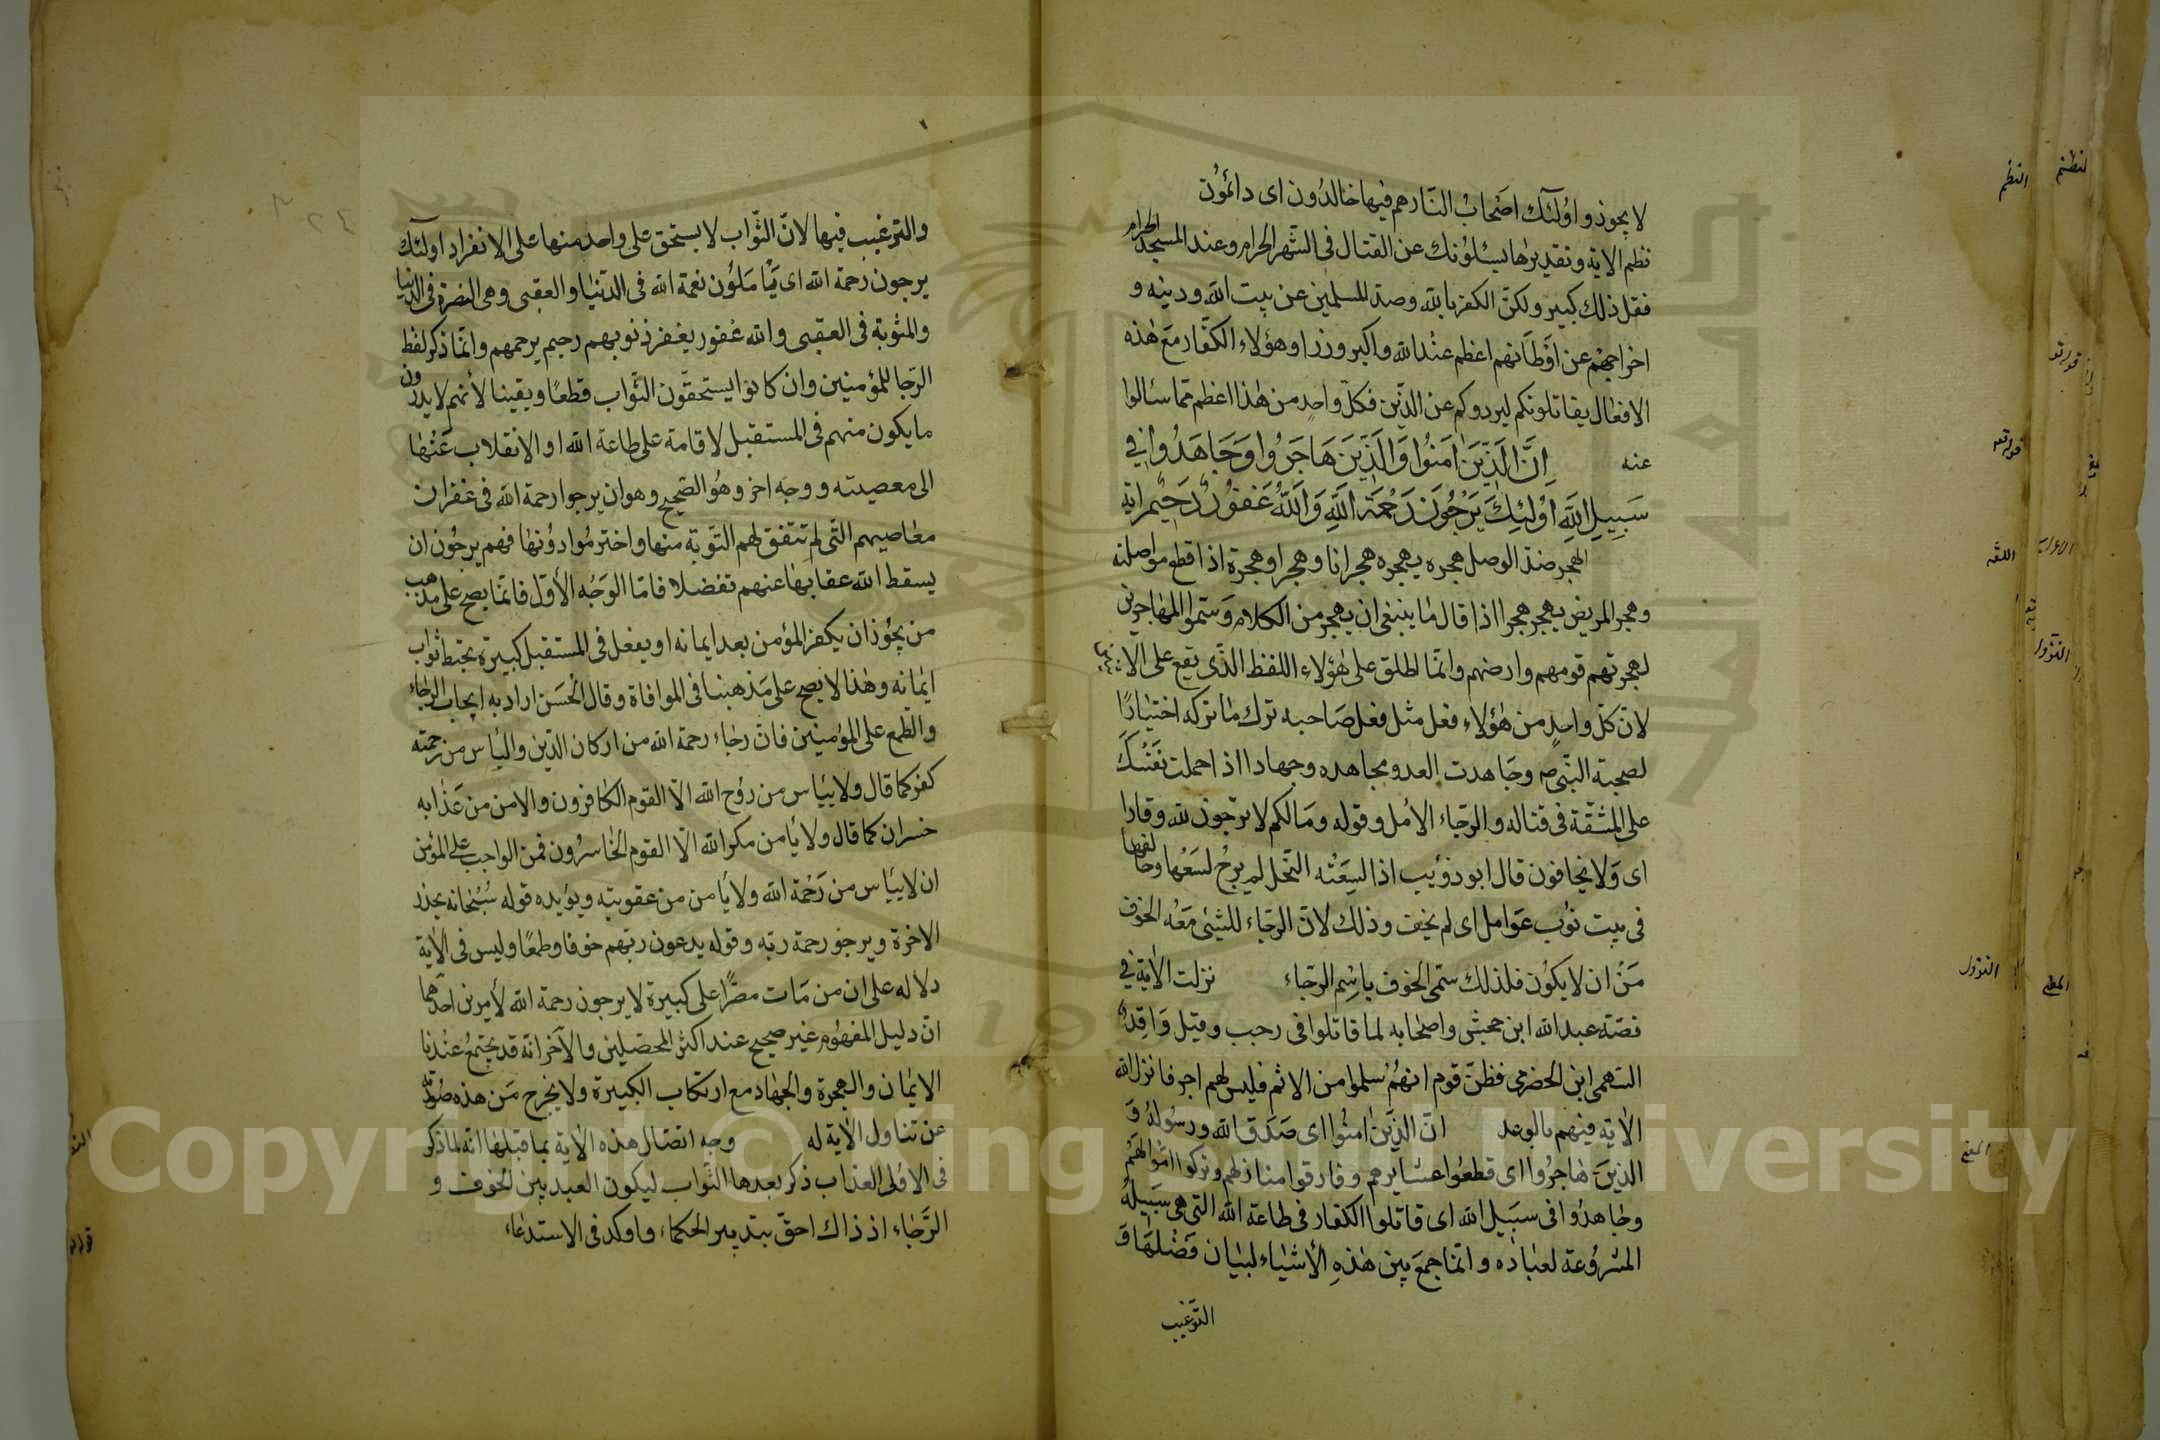 لا يجوز واولئك اصحاب النار هم فيها خالدون اى دائمون
نظم الاية وتقديرها يسئلونك عن القتال فى الشهر الحرام وعند المسجد الحرام
فقل ذلك كبير ولكن الكفر بالله وصد المسلمين عن بيت الله ودينه و
اخراجهم عن اوطانهم اعظم عند الله واكبر وزرا وهؤلاء الكفار مع هذه
الافعال يقاتلونكم ليردوكم عن الدين فكل واحد من هذا اعظم مما سالوا
عنه اِنَّ الَّذِينَ اٰمَنُوا وَالَّذِينَ هَاجَرُوا وَجَاهَدُوا فِي
سَبِيلِ اللَّهِ اُولئِكَ يَرْجُونَ رَحْمَةَ اللَّهِ وَاللَّهُ غَفُورٌ رَحِيم اية
الهجر ضد الوصل هجره يهجره هجرانا وهجرا وهجرة اذا قطع مواصلته
وهجر المريض يهجر هجرا اذا قال ما ينبغى ان يهجر من الكلام وسموا المهاجرين
لهجرتهم قومهم وارضهم وانما اطلق على هؤلاء اللفظ الذى يقع على الاثنين
لان كل واحد من هؤلاء فعل مثل فعل صاحبه ترك ما تركه اختيارًا
لصحبة النبى ص وجاهدت العدو مجاهده وجهادا اذا حملت نفسك
على المشقة فى قتاله والرجاء الامل وقوله ومالكم لا ترجون لله وقارا
اى ولا تخافون قال ابو ذؤيب اذا لسعته النحل لم يرج لسعها وحالفها
فى بيت نوب عوامل اى لم يخف وذلك لان الرجاء للشئ معه الخوف
من ان لا يكون فلذلك سمى الخوف باسم الرجاء نزلت الاية فى
قصة عبد الله ابن جحش واصحابه لما قاتلوا فى رجب وقتل واقد
السهمى ابن الحضرمى فظن قوم انهم سلموا من الاثم فليس لهم اجر فانزل الله
الاية فيهم بالوعد ان الذين امنوا اى صدقوا الله ورسوله و
الذين هاجروا اى قطعوا عشايرهم وفارقوا منازلهم وتركوا اموالهم
وجاهدوا فى سبيل الله اى قاتلوا الكفار فى طاعة الله التى هى سبيله
المشروعة لعباده وانما جمع بين هذه الأشياء لبيان فضلها و
الترغيب
والترغيب فيها لان الثواب لا يستحق على واحد منها على الانفراد اولئك
يرجون رحمة الله اى يأملون نعمة الله فى الدنيا والعقبى وهى النصرة فى الدنيا
والمثوبة فى العقبى والله غفور يغفر ذنوبهم رحيم يرحمهم وانما ذكر لفظ
الرجا للمؤمنين وان كانوا يستحقون الثواب قطعًا ويقينا لأنهم لا يدرون
ما يكون منهم فى المستقبل لاقامة على طاعة الله او الانقلاب عنها
الى معصيته ووجه اخر وهو الصحيح وهو ان يرجوا رحمة الله فى غفران
معاصيهم التى لم تتفق لهم التوبة منها واخترموا دونها فهم يرجون ان
يسقط الله عقابها عنهم تفضلا فاما الوجه الأول فانما يصح على مذهب
من يجوز ان يكفر المؤمن بعد ايمانه او يفعل فى المستقبل كبيرة تحبط ثواب
ايمانه وهذا لا يصح على مذهبنا فى الموافاة وقال الحسن اراد به ايجاب الرجاء
والطمع على المؤمنين فان رجاء رحمة الله من اركان الدين والياس من رحمته
كفر كما قال ولا ييأس من روح الله الا القوم الكافرون والامن من عذابه
خسران كما قال ولا يأمن مكر الله الا القوم الخاسرون فمن الواجب على المؤمن
ان لا ييأس من رحمة الله ولا يأمن من عقوبته ويؤيده قوله سبحانه يحذر
الاخرة ويرجو رحمة ربه وقوله يدعون ربهم خوفا وطمعًا وليس فى الاية
دلاله على ان من مات مصرًّا على كبيرة لا يرجون رحمة الله لأمرين احدهما
ان دليل المفهوم غير صحيح عند اكثر المحصلين والآخر انه قد يجتمع عندنا
الايمان والهجرة والجهاد مع ارتكاب الكبيرة ولا يخرج من هذه صورته
عن تناول الاية له وجه اتصال هذه الاية بما قبلها انه لما ذكر
فى الاولى العذاب ذكر بعدها الثواب ليكون العبد بين الخوف و
الرجاء اذ ذاك احق بتدبير الحكماء واوكد فى الاستدعاء
النظم
اللغة
النزول
النزول
المعنى
المعنى
Copyright © King Saud University